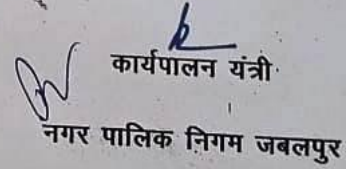 कार्यपालन यंत्री
नगर पालिक निगम जबलपुर